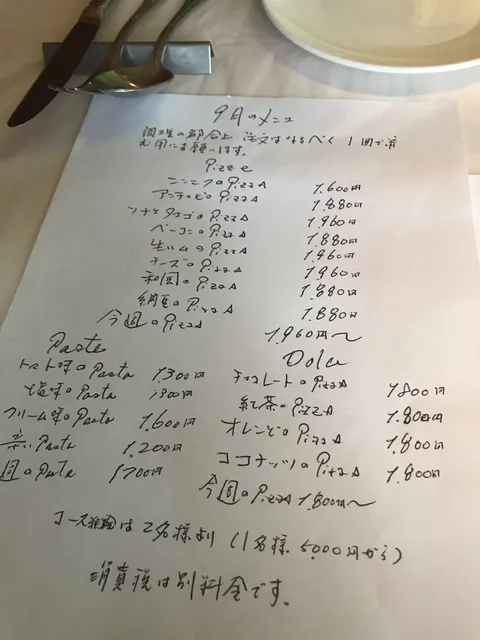 9月のメニュ
調理の都合上 注文はなるべく1回で済
お願います。
Pizze
ニンニクのPizzA 1.600円
アンチョビのPizzA 1.880円
ツナとタマゴのPizzA 1.960円
ベーコンのPizzA 1.880円
生ハムのPizzA 1.960円
チーズのPizzA 1.960円
和風のPizzA 1.880円
納豆のPizzA 1.880円
今週のPizzA 1.960円〜
Pasta
トマト味のPasta 1300円
塩味のPasta
クリーム味のPasta 1.600円
Pasta 1.200円
週のPasta 1700円
Dolce
チョコレートのPizzA 1800円
紅茶のPizzA 1.800円
オレンジのPizzA 1.800円
ココナッツのPizzA 1.800円
今週のPizzA 1.800円〜
コース料理は2名様より(1名様5.000円から)
消費税は別料金です。